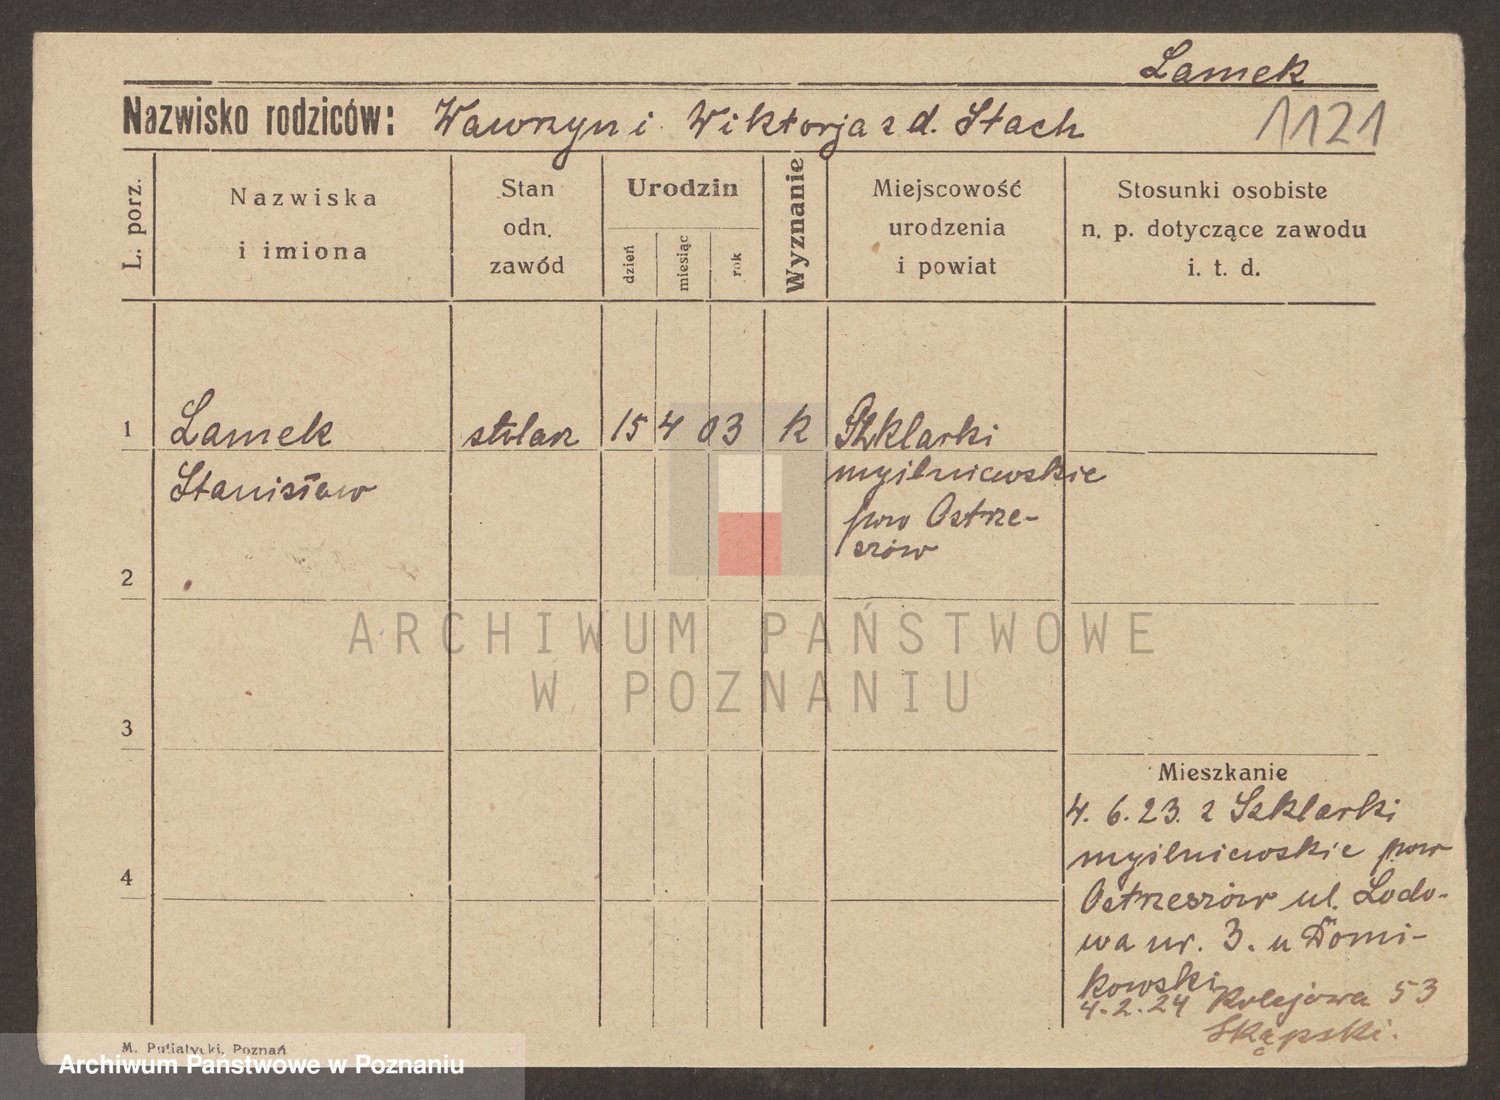 Lamek
Nazwisko rodziców: Wawrzyn i Wiktorja z d. Stach
1121
L. porz.
Nazwiska
i imiona
Stan
odn.
zawód
Urodzin
dzień
miesiąc
rok
Wyznanie
Miejscowość
urodzenia
i powiat
Stosunki osobiste
n. p. dotyczące zawodu
i. t. d.
1 Lamek stolarz 15 4 03 k Szklarki
Stanisław myilniewskie
pow Ostrze-
szów
2
3
4
ARCHIWUM PAŃSTWOWE
W POZNANIU
Mieszkanie
4. 6. 23. z Szklarki
myilniewskie pow
Ostrzeszów ul. Lodo-
wa nr. 3. u Domi-
kowski
4. 2. 24 Kolejowa 53
Skąpski.
M. Putiatycki, Poznań
Archiwum Państwowe w Poznaniu